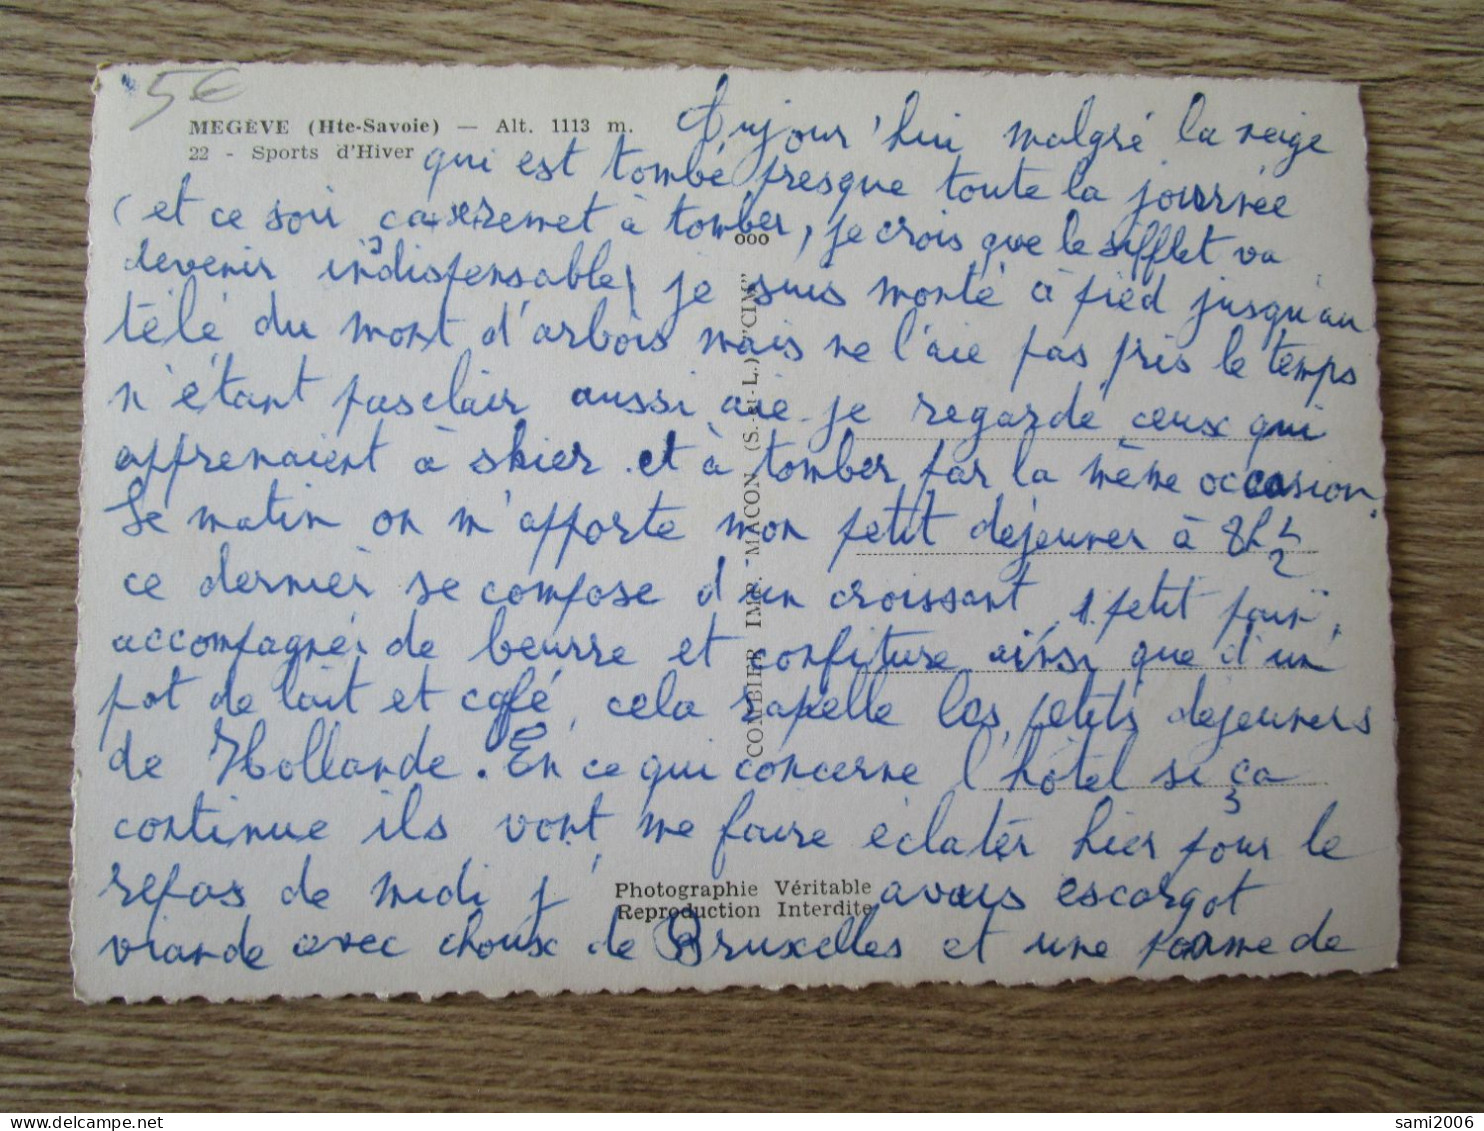 5€
MEGÈVE (Hte-Savoie) — Alt. 1113 m.
22 - Sports d'Hiver
Aujour'hui malgré la neige
qui est tombé presque toute la journée
(et ce soir ça remet à tomber, je crois que le sifflet va
devenir indispensable) je suis monté à pied jusqu'au
télé du mont d'arbois mais ne l'aie pas pris le temps
n'étant pas clair aussi aie je regardé ceux qui
apprenaient à skier et à tomber par la même occasion.
Le matin on m'apporte mon petit dejeuner à 8h ½
ce dernier se compose d'un croissant, 1 petit pain,
accompagné de beurre et confiture ainsi que d'un
pot de lait et café, cela rapelle les petits dejeuners
de Hollande. En ce qui concerne l'hôtel si ça
continue ils vont me faire éclater hier pour le
repas de midi j'avais escargot
viande avec choux de Bruxelles et une pomme de
ooo
COMBIER IMP. MACON (S.-et-L.) "CIM"
Photographie Véritable
Reproduction Interdite
sami2006